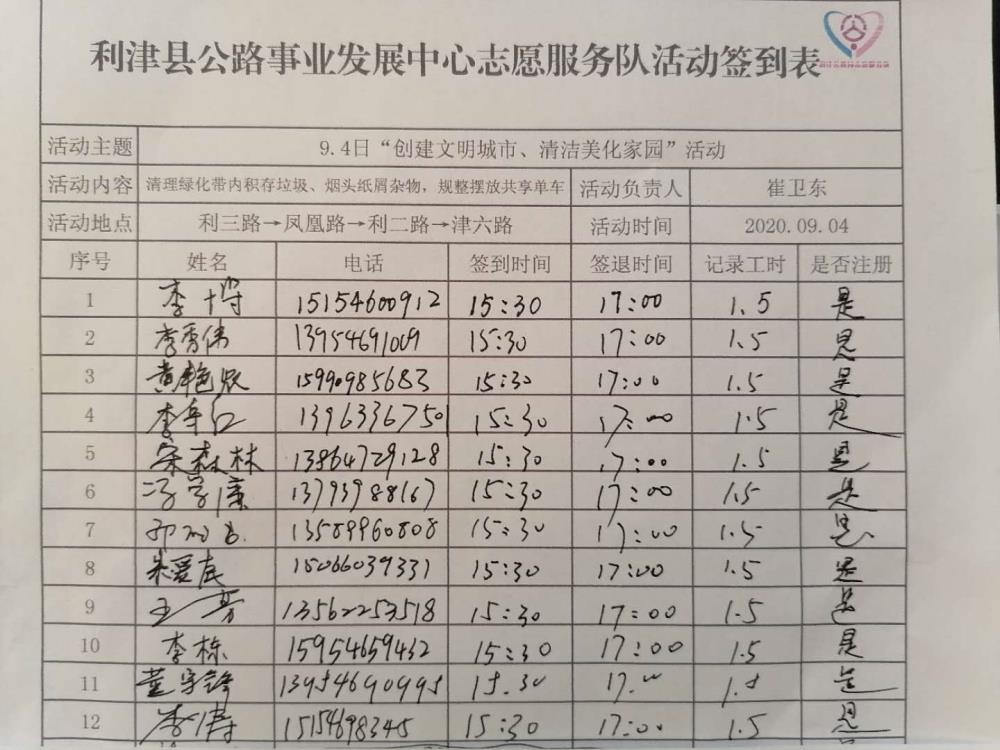 利津县公路事业发展中心志愿服务队活动签到表
活动主题 9.4日“创建文明城市、清洁美化家园”活动
活动内容 清理绿化带内积存垃圾、烟头纸屑杂物，规整摆放共享单车 活动负责人 崔卫东
活动地点 利三路→凤凰路→利二路→津六路 活动时间 2020.09.04
序号 姓名 电话 签到时间 签退时间 记录工时 是否注册
1 李博 15154600912 15:30 17:00 1.5 是
2 李秀伟 13954691009 15:30 17:00 1.5 是
3 黄艳 15990985683 15:30 17:00 1.5 是
4 李 13963367501 15:30 17:00 1.5 是
5 宋森林 13864729128 15:30 17:00 1.5 是
6 冯学廉 13793988167 15:30 17:00 1.5 是
7 13589960808 15:30 17:00 1.5 是
8 朱爱 15066039331 15:30 17:00 1.5 是
9 王芳 13562253518 15:30 17:00 1.5 是
10 李栋 15954659432 15:30 17:00 1.5 是
11 董宇锋 13954690995 15.30 17.00 1.5 是
12 李涛 15154698345 15:30 17:00 1.5 是